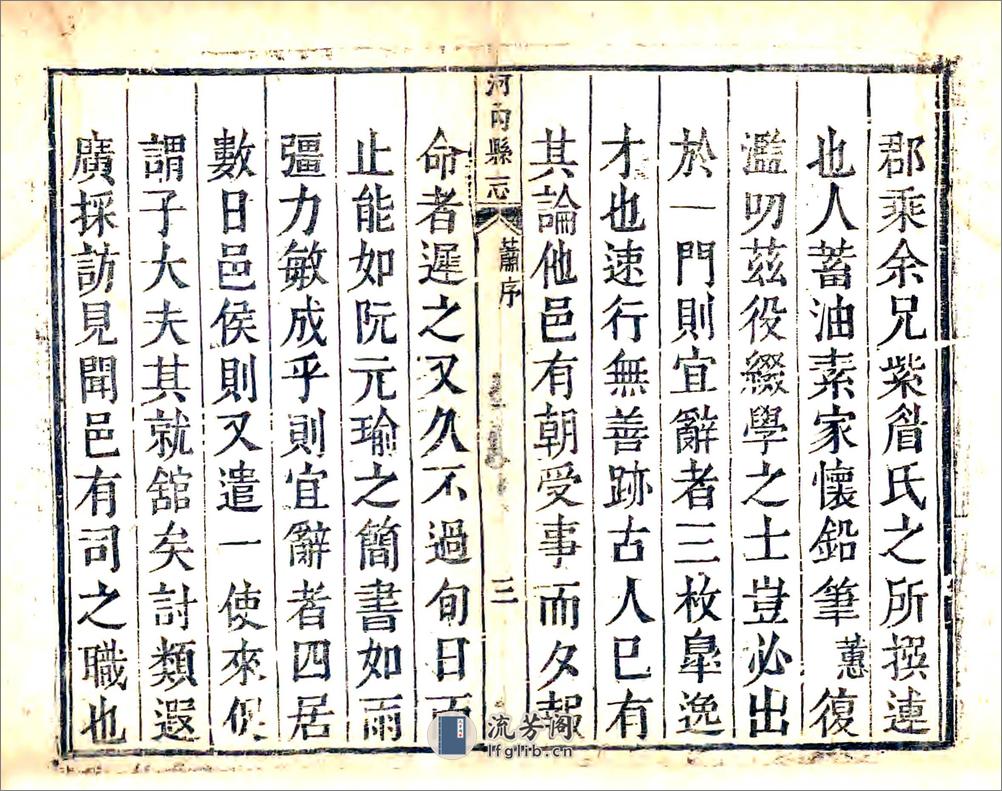 郡乘余兄紫眉氏之所撰連
也人蓄油素家懷鉛筆蕙復
濫叨茲役綴學之士豈必出
於一門則宜辭者三枚臯逸
才也速行無善跡古人已有
其論他邑有朝受事而夕報
河內縣志
蕭序
三
命者遲之又久不過旬日而
止能如阮元瑜之簡書如雨
彊力敏成乎則宜辭者四居
數日邑侯則又遣一使來
謂子大夫其就舘矣討類遐
廣採訪見聞邑有司之職也
流芳阁
lfglib.cn